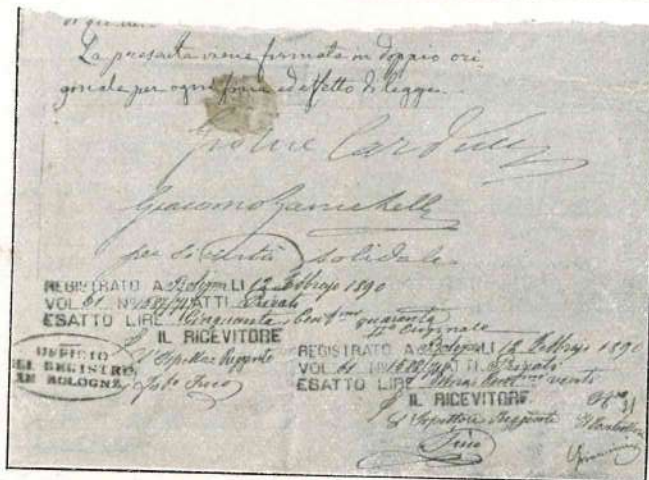 La presente viene firmata in doppio ori
ginale per ogni fine ed effetto di legge.
Giosue Carducci
Giacomo Zanichelli
per sicurtà solidale
REGISTRATO A Bologna LI 12 Febbrajo 1890
VOL. 61 N° ATTI Privati
ESATTO LIRE Cinquanta Cent quaranta
Originale
IL RICEVITORE
L'Ispettore Reggente
UFFICIO
DEL REGISTRO
IN BOLOGNA
REGISTRATO A Bologna LI 12 Febbrajo 1890
VOL. 61 N° ATTI Privati
ESATTO LIRE venti
IL RICEVITORE
L'Ispettore Reggente